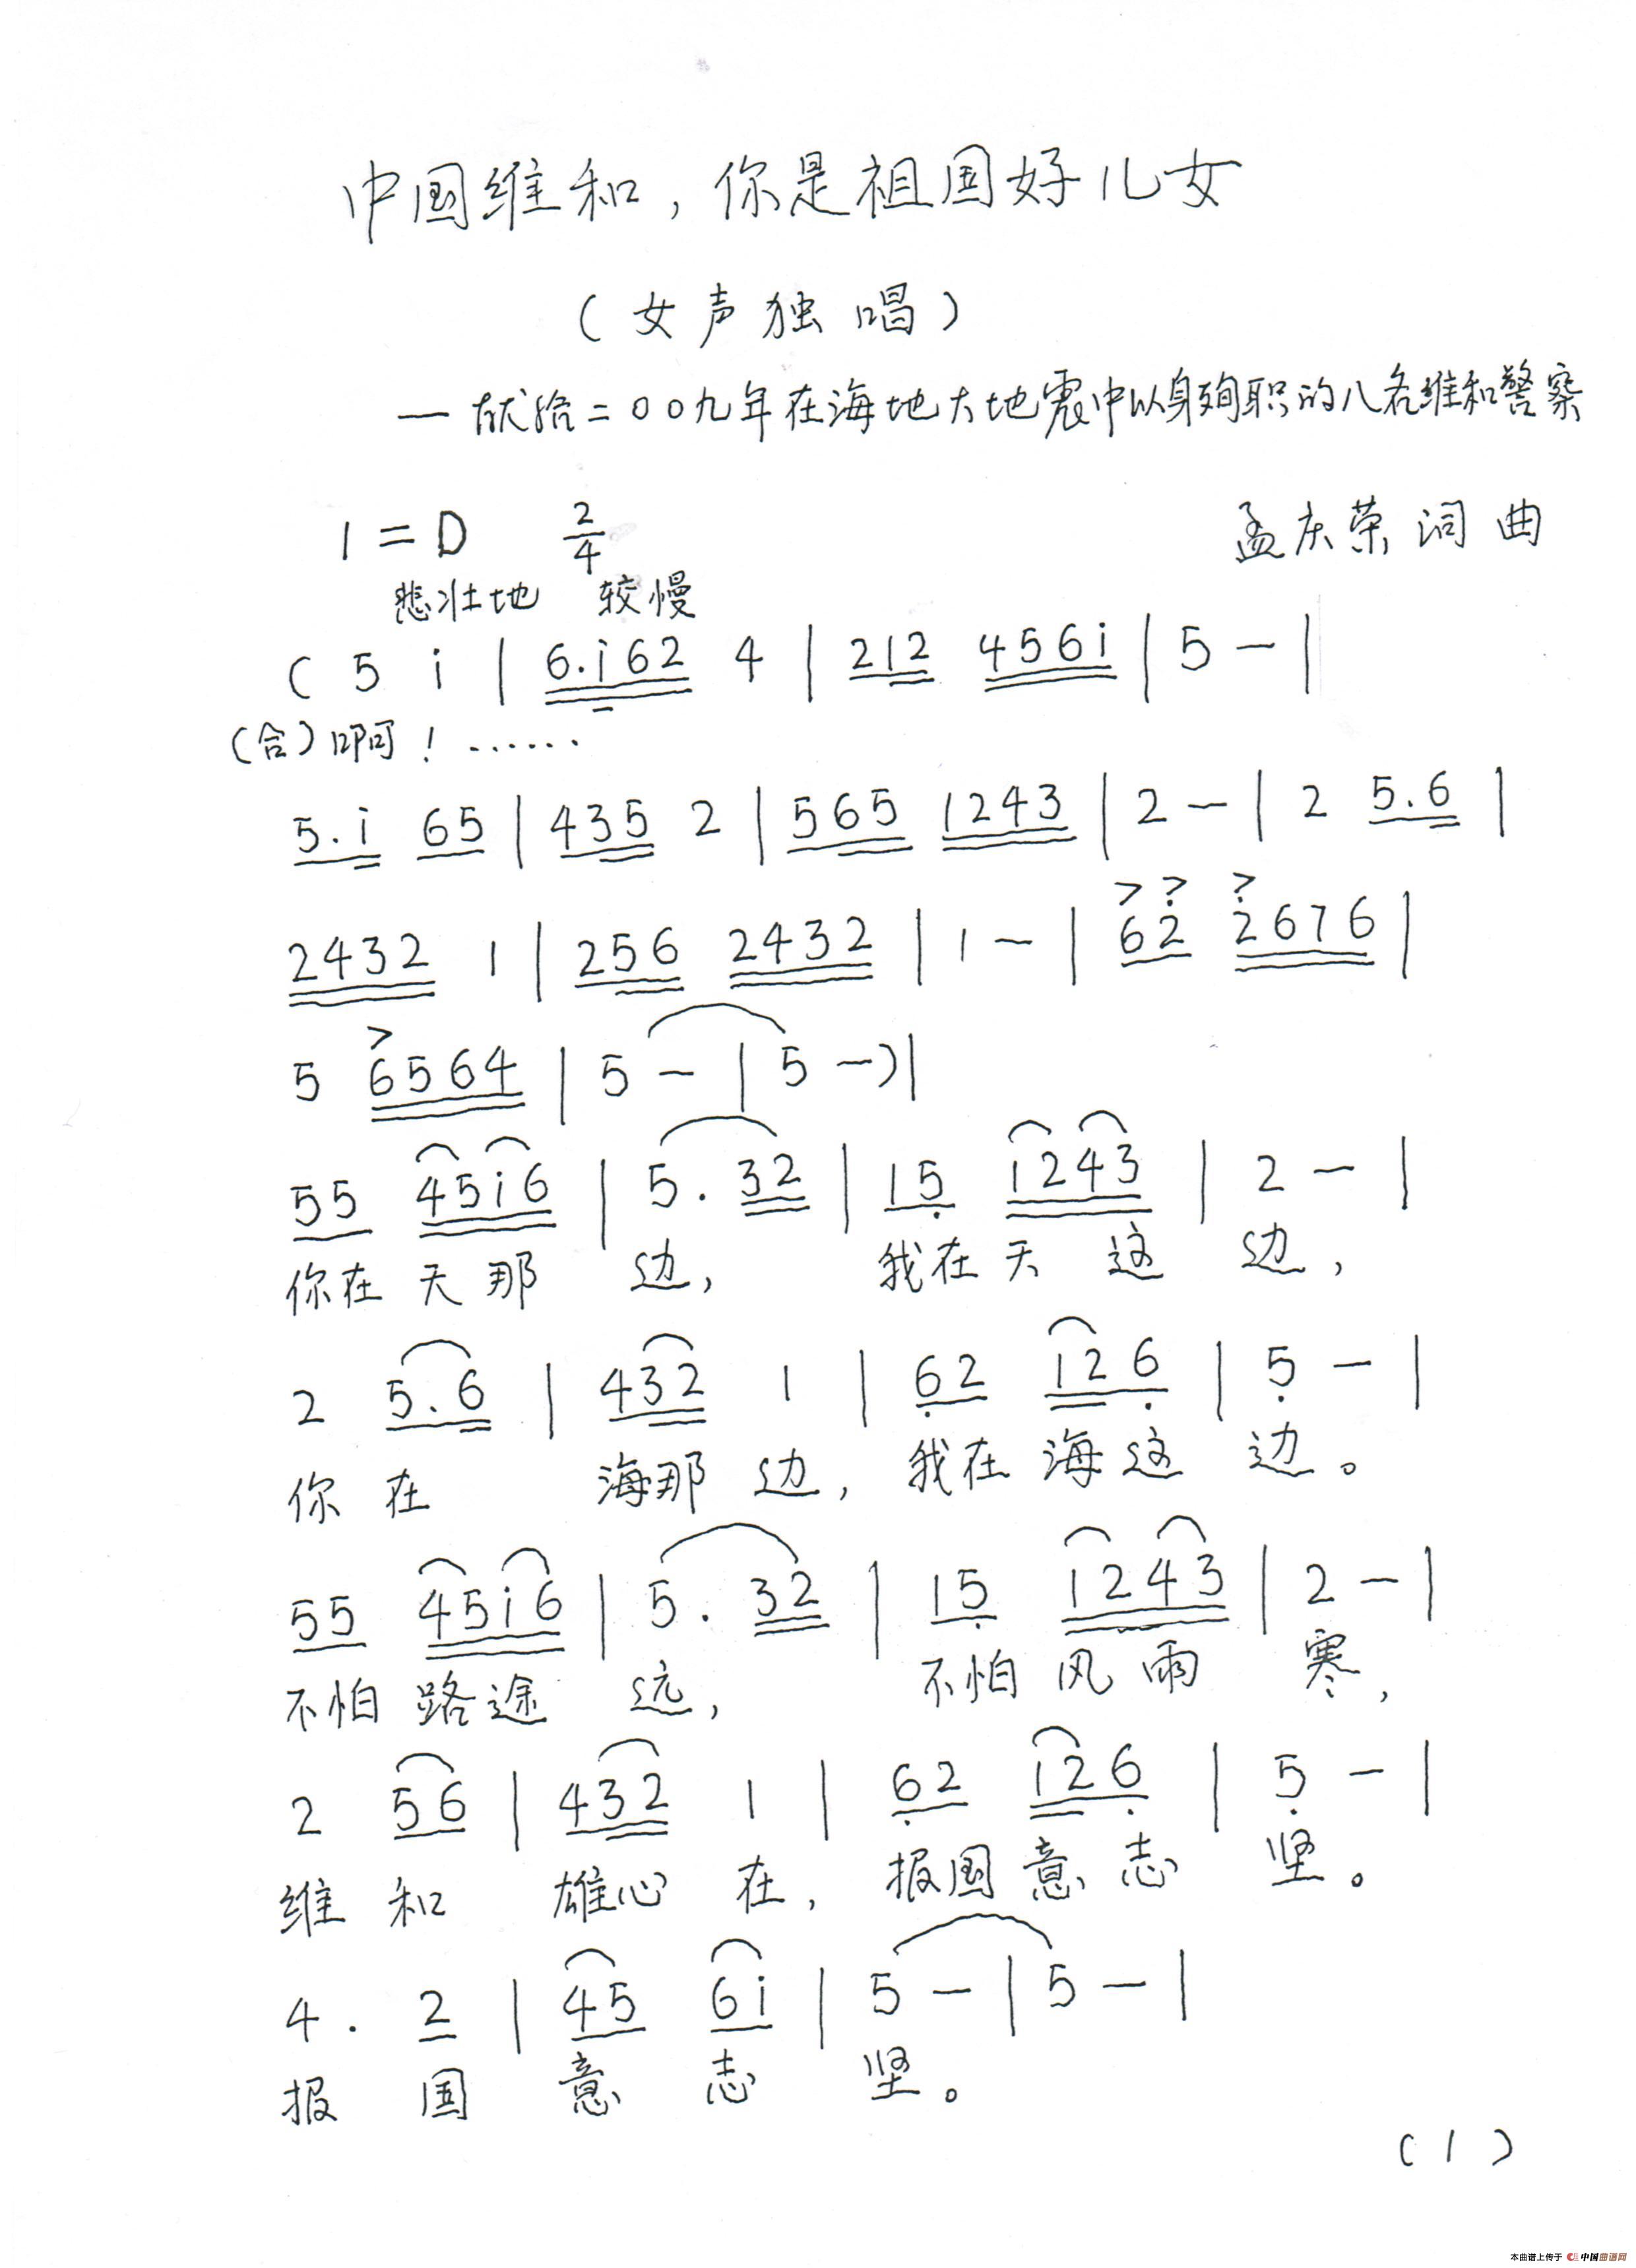 中国维和，你是祖国好儿女
（女声独唱）
—献给二00九年在海地大地震中以身殉职的八名维和警察
1=D 2/4 孟庆荣词曲
悲壮地 较慢
( 5 i | 6.i62 4 | 212 456i | 5 — |
（合）啊！……
5.i 65 | 435 2 | 565 1243 | 2 — | 2 5.6 |
2432 1 | 256 2432 | 1 — | 62 2676 |
5 6564 | 5 — | 5 —)|
55 45i6 | 5. 32 | 15 1243 | 2 — |
你在天那边， 我在天这边，
2 5.6 | 432 1 | 62 126 | 5 — |
你在 海那边，我在海这边。
55 45i6 | 5. 32 | 15 1243 | 2 — |
不怕路途 远， 不怕风雨 寒，
2 56 | 432 1 | 62 126 | 5 — |
维和 雄心在，报国意志 坚。
4. 2 | 45 6i | 5 — | 5 — |
报国意志坚。
(1)
本曲谱上传于 中国曲谱网